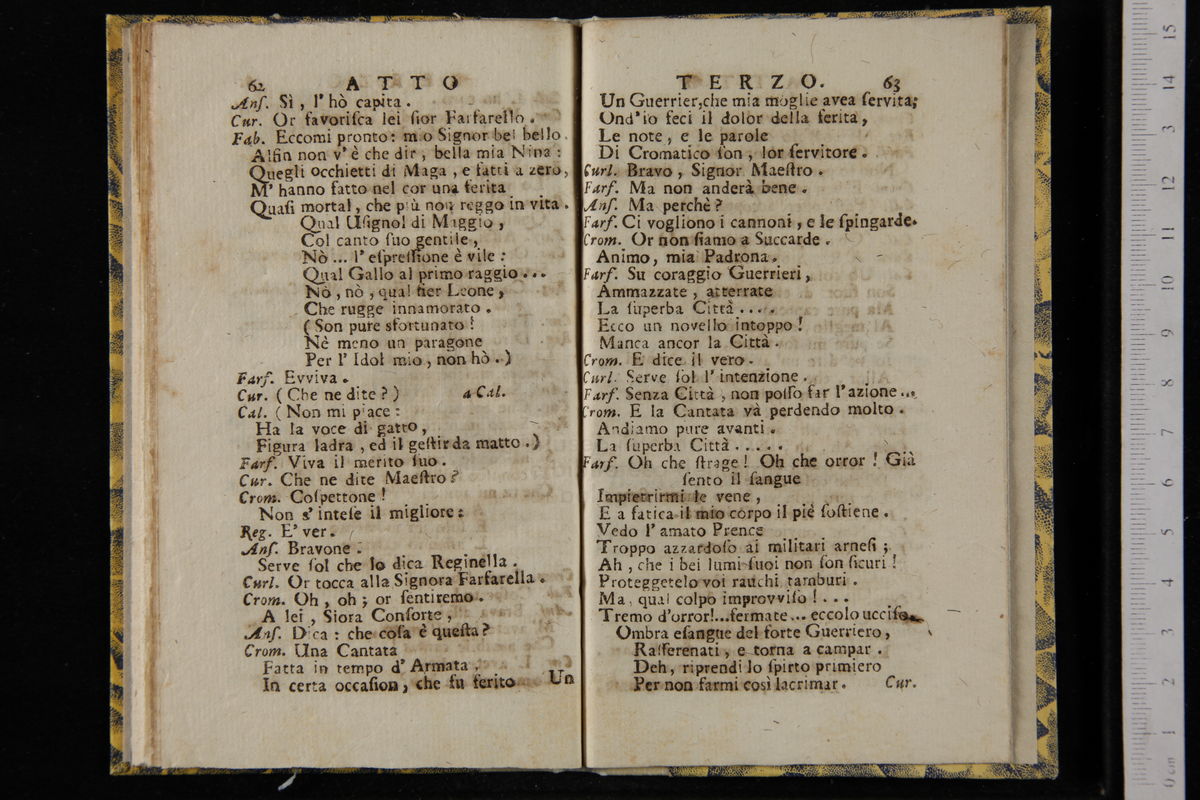 62 ATTO
Anſ. Sì, l' hò capita.
Cur. Or favoriſca lei ſior Farfarello.
Fab. Eccomi pronto: mio Signor bel bello.
Alfin non v' è che dir, bella mia Nina:
Quegli occhietti di Maga, e fatti a zero,
M' hanno fatto nel cor una ferita
Quaſi mortal, che più non reggo in vita.
Qual Uſignol di Maggio,
Col canto ſuo gentile,
Nò ... l' eſpreſſione è vile:
Qual Gallo al primo raggio...
Nò, nò, qual fier Leone,
Che rugge innamorato.
(Son pure sfortunato!
Nè meno un paragone
Per l' Idol mio, non hò.)
Farf. Evviva.
Cur. (Che ne dite?) a Cal.
Cal. (Non mi piace:
Ha la voce di gatto,
Figura ladra, ed il geſtir da matto.)
Farf. Viva il merito ſuo.
Cur. Che ne dite Maeſtro?
Crom. Coſpettone!
Non s' inteſe il migliore:
Reg. E' ver.
Anſ. Bravone:
Serve ſol che lo dica Reginella.
Curl. Or tocca alla Signora Farfarella.
Crom. Oh, oh; or ſentiremo.
A lei, Siora Conſorte,
Anſ. Dica: che coſa è queſta?
Crom. Una Cantata
Fatta in tempo d' Armata.
In certa occaſion, che fu ferito
Un
TERZO. 63
Un Guerrier, che mia moglie avea ſervita;
Ond' io feci il dolor della ferita,
Le note, e le parole
Di Cromatico ſon, lor ſervitore.
Curl. Bravo, Signor Maeſtro.
Farf. Ma non anderà bene.
Anſ. Ma perchè?
Farf. Ci vogliono i cannoni, e le ſpingarde.
Crom. Or non ſiamo a Succarde.
Animo, mia Padrona.
Farf. Su coraggio Guerrieri,
Ammazzate, atterrate
La ſuperba Città....
Ecco un novello intoppo!
Manca ancor la Città.
Crom. E dice il vero.
Curl. Serve ſol l' intenzione.
Farf. Senza Città, non poſſo far l' azione...
Crom. E la Cantata và perdendo molto.
Andiamo pure avanti.
La ſuperba Città.....
Farf. Oh che ſtrage! Oh che orror! Già
ſento il ſangue
Impietrirmi le vene,
E a fatica il mio corpo il piè ſoſtiene.
Vedo l' amato Prence
Troppo azzardoſo ai militari arneſi;
Ah, che i bei lumi ſuoi non ſon ſicuri!
Proteggetelo voi rauchi tamburi.
Ma, qual colpo improvviſo!...
Tremo d'orror!...fermate... eccolo ucciſo
Ombra eſangue del forte Guerriero,
Raſſerenati, e torna a campar.
Deh, riprendi lo ſpirto primiero
Per non farmi così lacrimar.
Cur.